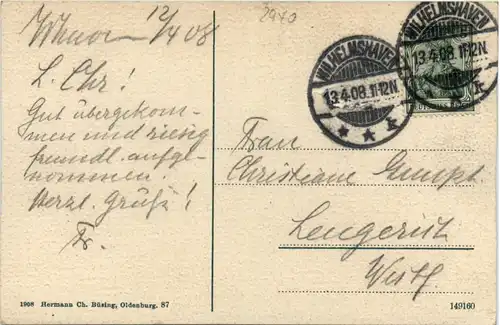 12/4 08
2940
L. Chr!
Gut übergekom-
men und riesig
freundl. aufge-
nommen.
Herzl. Grüße!
Fr.
WILHELMSHAVEN
13.4.08.11-12N
WILHELMSHAVEN
13.4.08.11-12N
Frau
Christiane
Lengerich
Westf.
1908 Hermann Ch. Büsing, Oldenburg. 87
149160